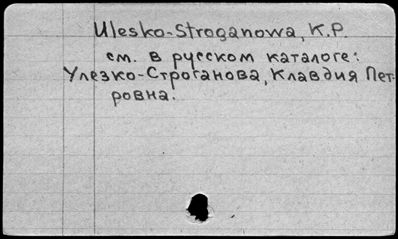 Ulesko-Stroganowa, K.P.
см. в русском каталоге:
Улезко-Строганова, Клавдия Пет-
ровна.